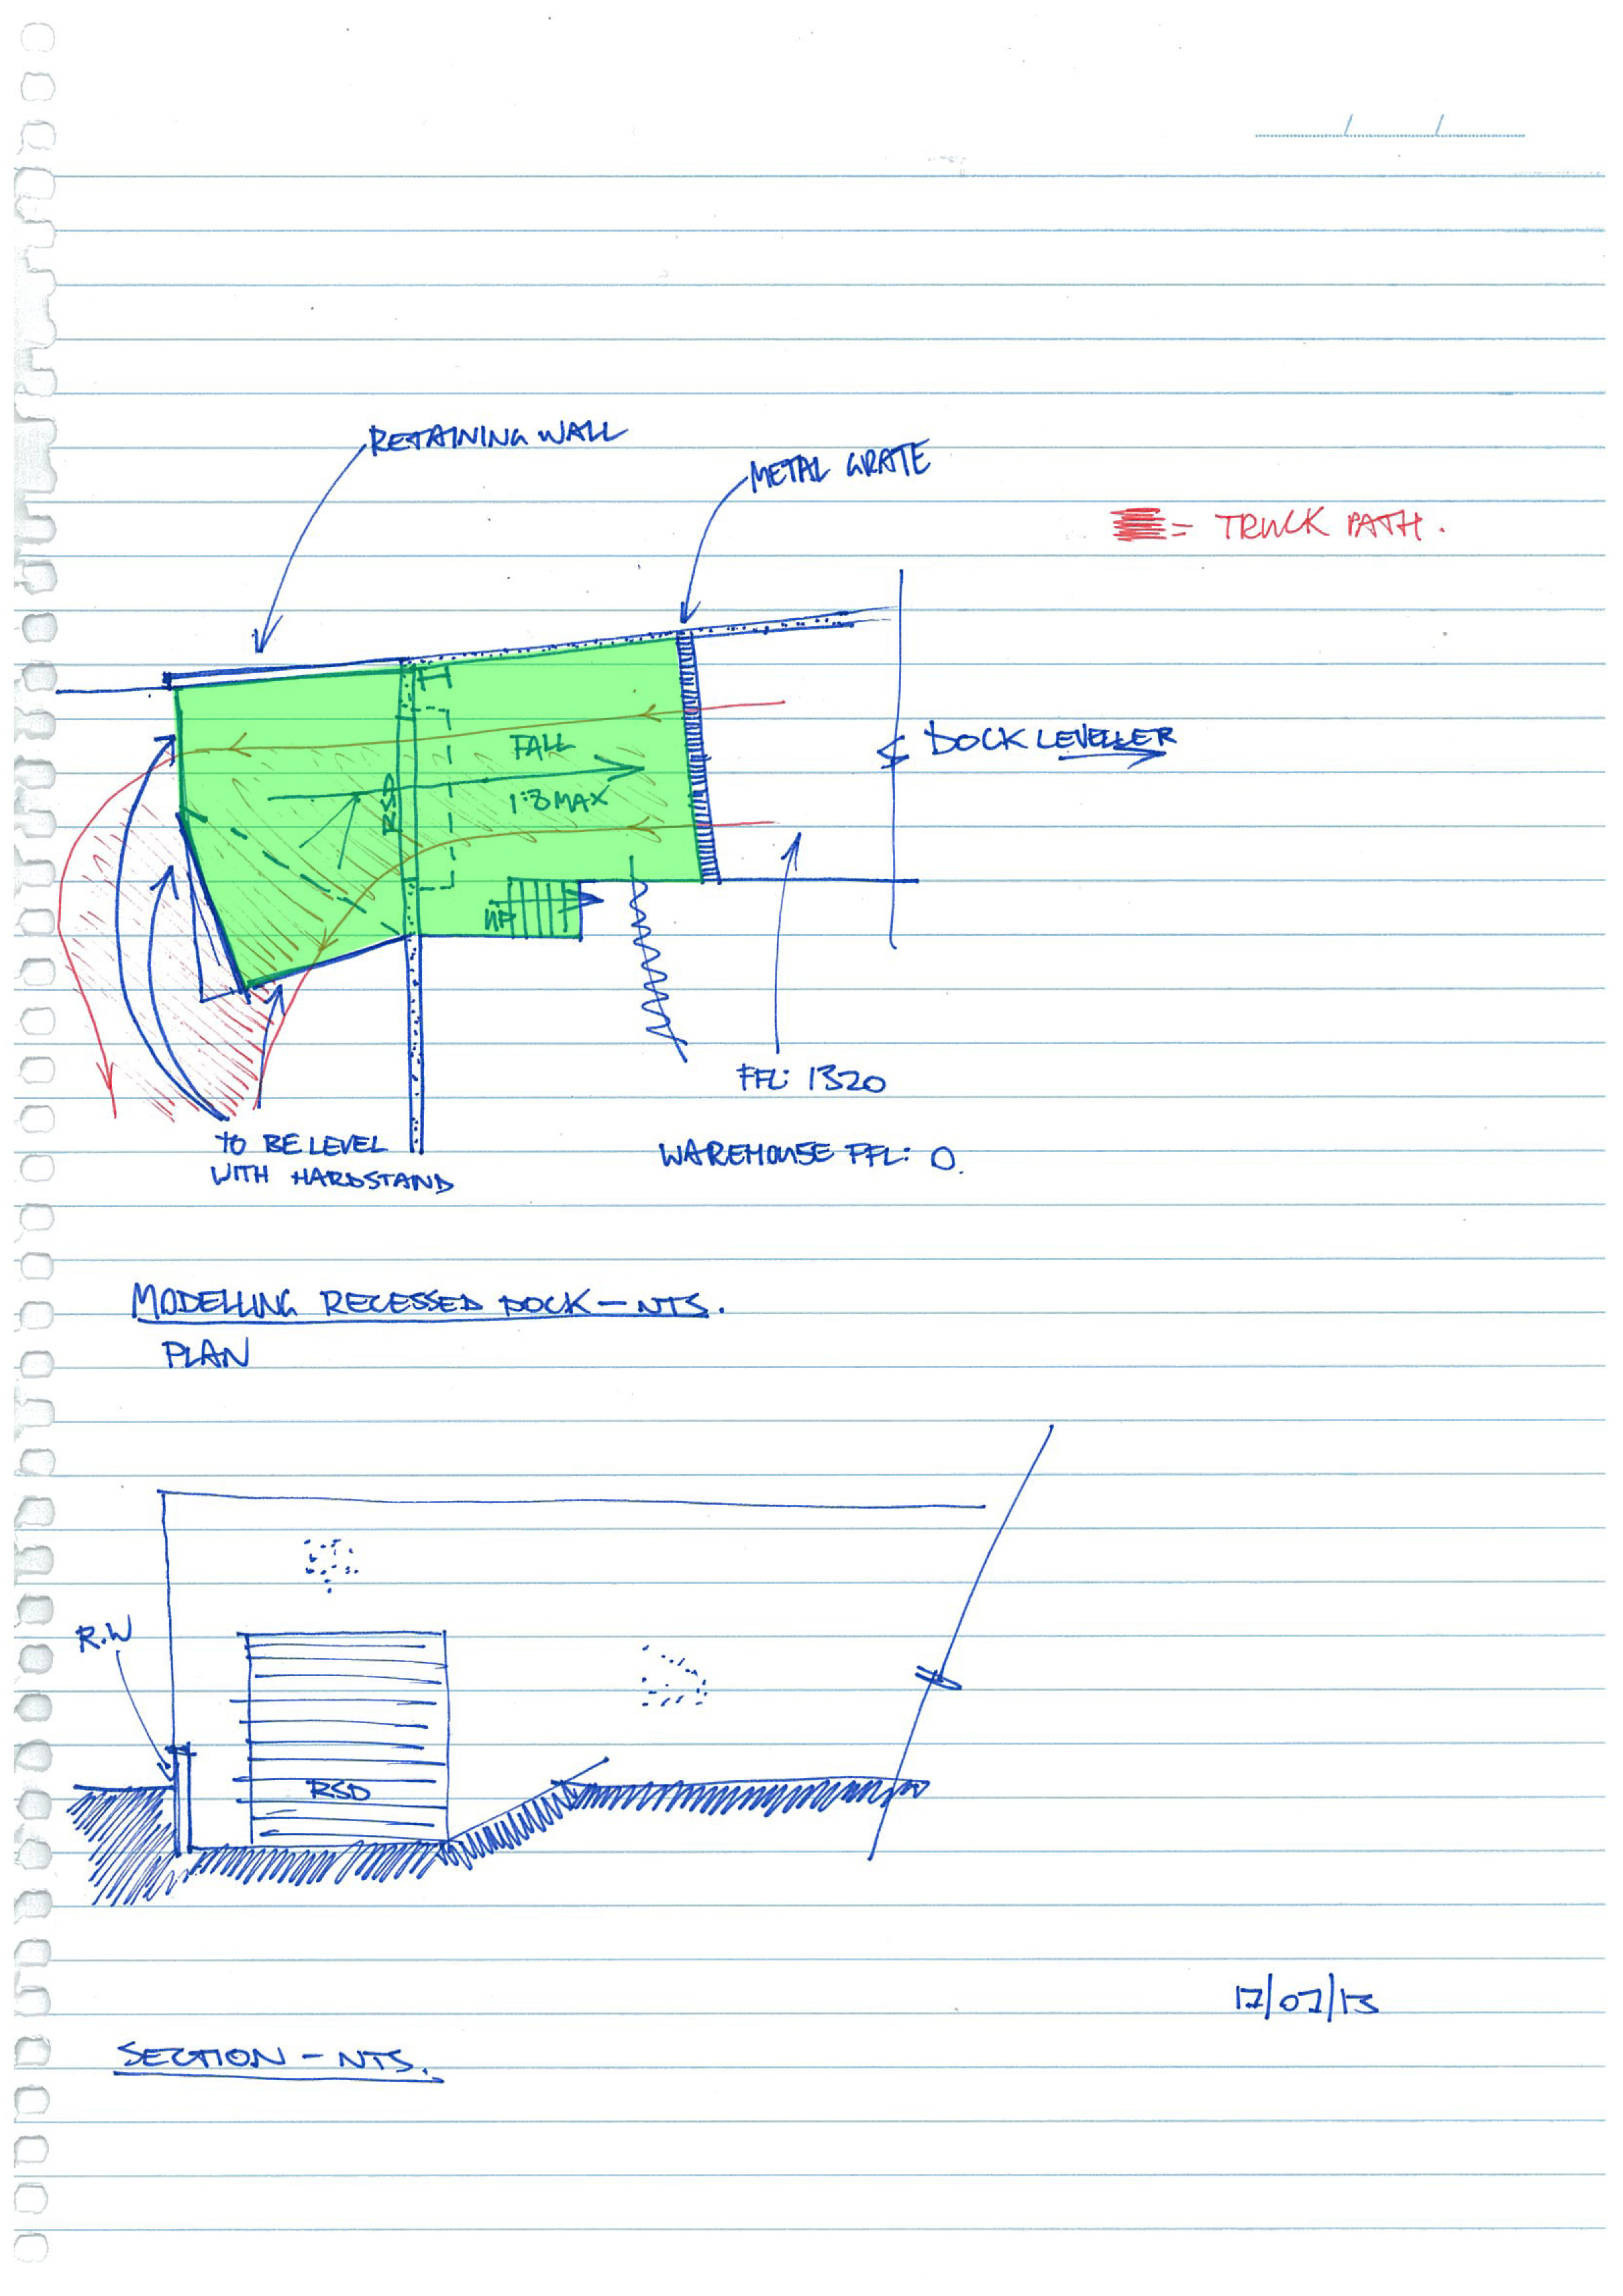 RETAINING WALL
METAL GRATE
= TRUCK PATH.
FALL
1:8 MAX
RSD
DOCK LEVELLER
UP
FFL: 1320
TO BE LEVEL
WITH HARDSTAND
WAREHOUSE FFL: 0.
MODELLING RECESSED DOCK - NTS.
PLAN
R.W
RSD
17/07/13
SECTION - NTS.